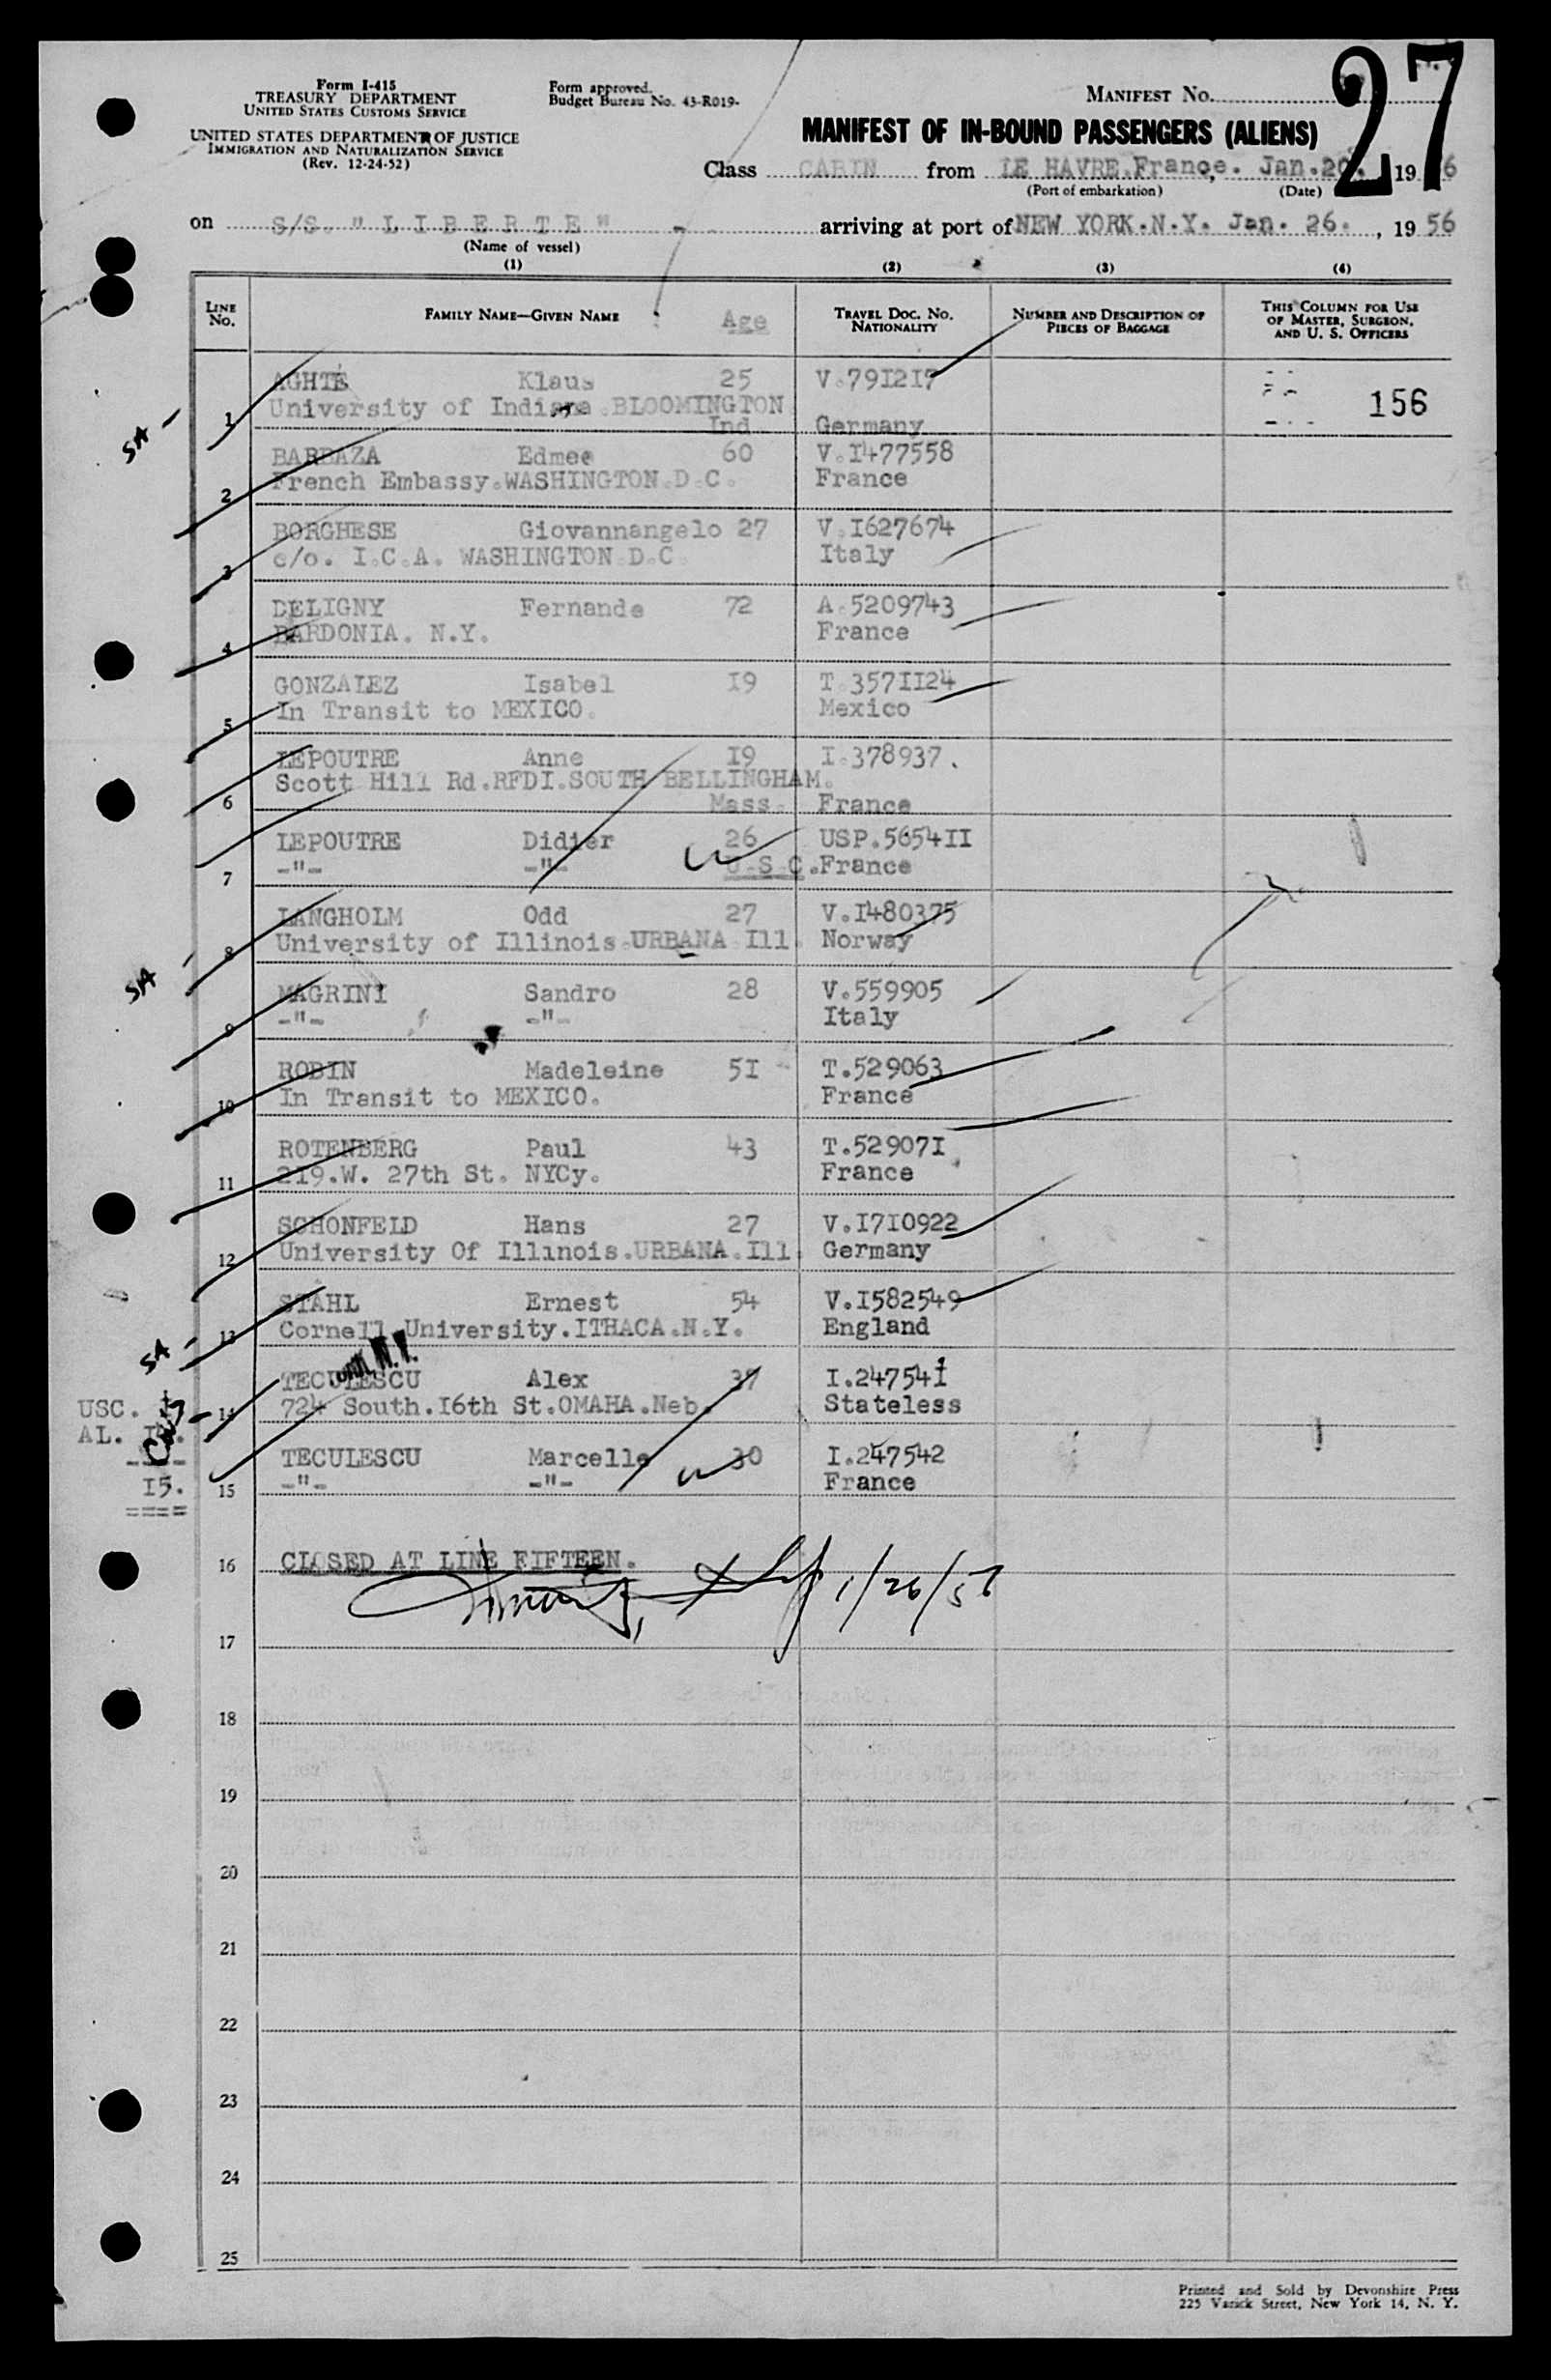 27
Form I-415
TREASURY DEPARTMENT
UNITED STATES CUSTOMS SERVICE
UNITED STATES DEPARTMENT OF JUSTICE
IMMIGRATION AND NATURALIZATION SERVICE
(Rev. 12-24-52)
Form approved.
Budget Bureau No. 43-R019-
MANIFEST NO.
MANIFEST OF IN-BOUND PASSENGERS (ALIENS)
Class CABIN from LE HAVRE.France. Jan.20. 19 6
(Port of embarkation) (Date)
on S/S. " L I B E R T E " - arriving at port of NEW YORK.N.Y. Jan. 26. , 19 56
(Name of vessel)
(1) (2) (3) (4)
LINE NO. FAMILY NAME—GIVEN NAME Age TRAVEL DOC. NO. NATIONALITY NUMBER AND DESCRIPTION OF PIECES OF BAGGAGE THIS COLUMN FOR USE OF MASTER, SURGEON, AND U. S. OFFICERS
AGHTE Klaus 25 V.791217
156
SA - 1 University of Indiana.BLOOMINGTON
Ind Germany
BARBAZA Edmee 60 V.I477558
2 French Embassy.WASHINGTON.D.C. France
BORGHESE Giovannangelo 27 V.I627674
3 c/o. I.C.A. WASHINGTON.D.C. Italy
DELIGNY Fernande 72 A.5209743
4 BARDONIA. N.Y. France
GONZALEZ Isabel I9 T.357II24
5 In Transit to MEXICO. Mexico
LEPOUTRE Anne I9 I.378937.
Scott Hill Rd.RFDI.SOUTH BELLINGHAM.
6 Mass. France
LEPOUTRE Didier 26 USP.5654II
7 -"- -"- U.S.C. France
LANGHOLM Odd 27 V.I480375
8 University of Illinois.URBANA Ill. Norway
SA
MAGRINI Sandro 28 V.559905
9 -"- -"- Italy
ROBIN Madeleine 5I T.529063
10 In Transit to MEXICO. France
ROTENBERG Paul 43 T.52907I
11 219.W. 27th St. NYCy. France
SCHONFELD Hans 27 V.I7I0922
12 University Of Illinois.URBANA.Ill. Germany
STAHL Ernest 54 V.I582549
SA - 13 Cornell University.ITHACA.N.Y. England
TECULESCU Alex 37 I.24754I
USC. 14 724 South.I6th St.OMAHA.Neb. Stateless
AL.
TECULESCU Marcelle 30 I.247542
I5. 15 -"- -"- France
====
16 CLOSED AT LINE FIFTEEN.
1/26/56
17
18
19
20
21
22
23
24
25
Printed and Sold by Devonshire Press
225 Varick Street, New York 14, N. Y.